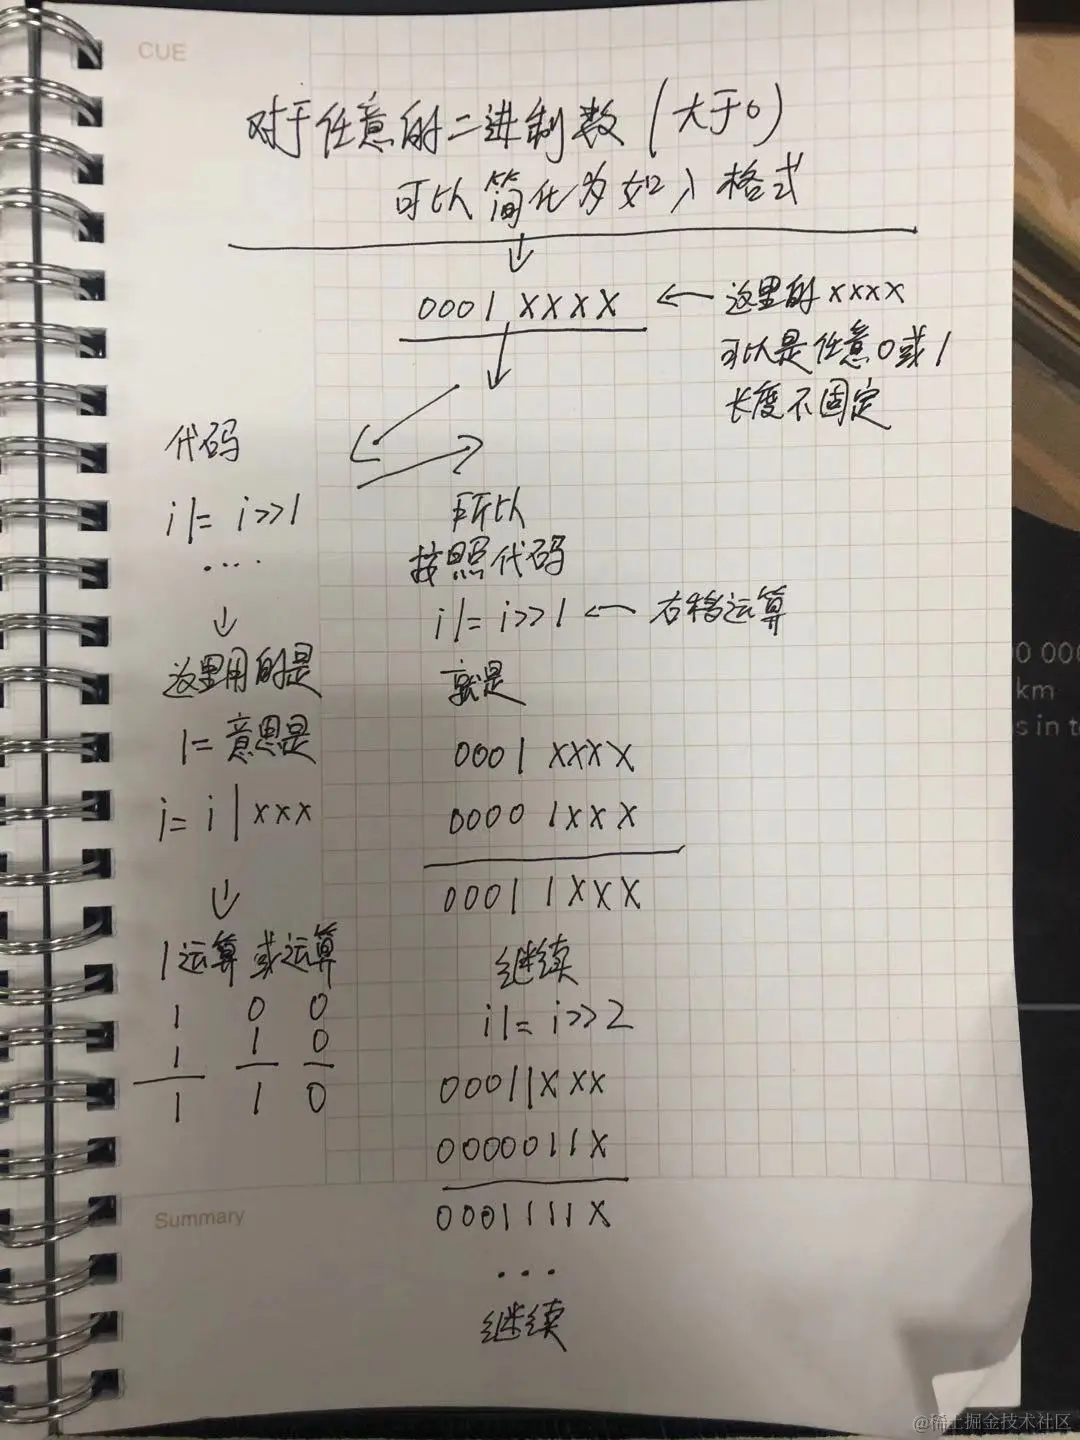 CUE
对于任意的二进制数(大于0)
可以简化为如入格式
↓
0001 XXXX ← 这里的XXXX
可以是任意0或1
长度不固定
代码
i |= i>>1
....
↓
这里用的是
|= 意思是
i= i | xxx
↓
|运算 或运算
1 0 0
1 1 0
1 1 0
所以
按照代码
i |= i>>1 ← 右移运算
就是
0001 XXXX
0000 1XXX
00011XXX
继续
i |= i>>2
00011XXX
0000011X
0001111X
...
继续
Summary
0 006
km
s in t
@稀土掘金技术社区